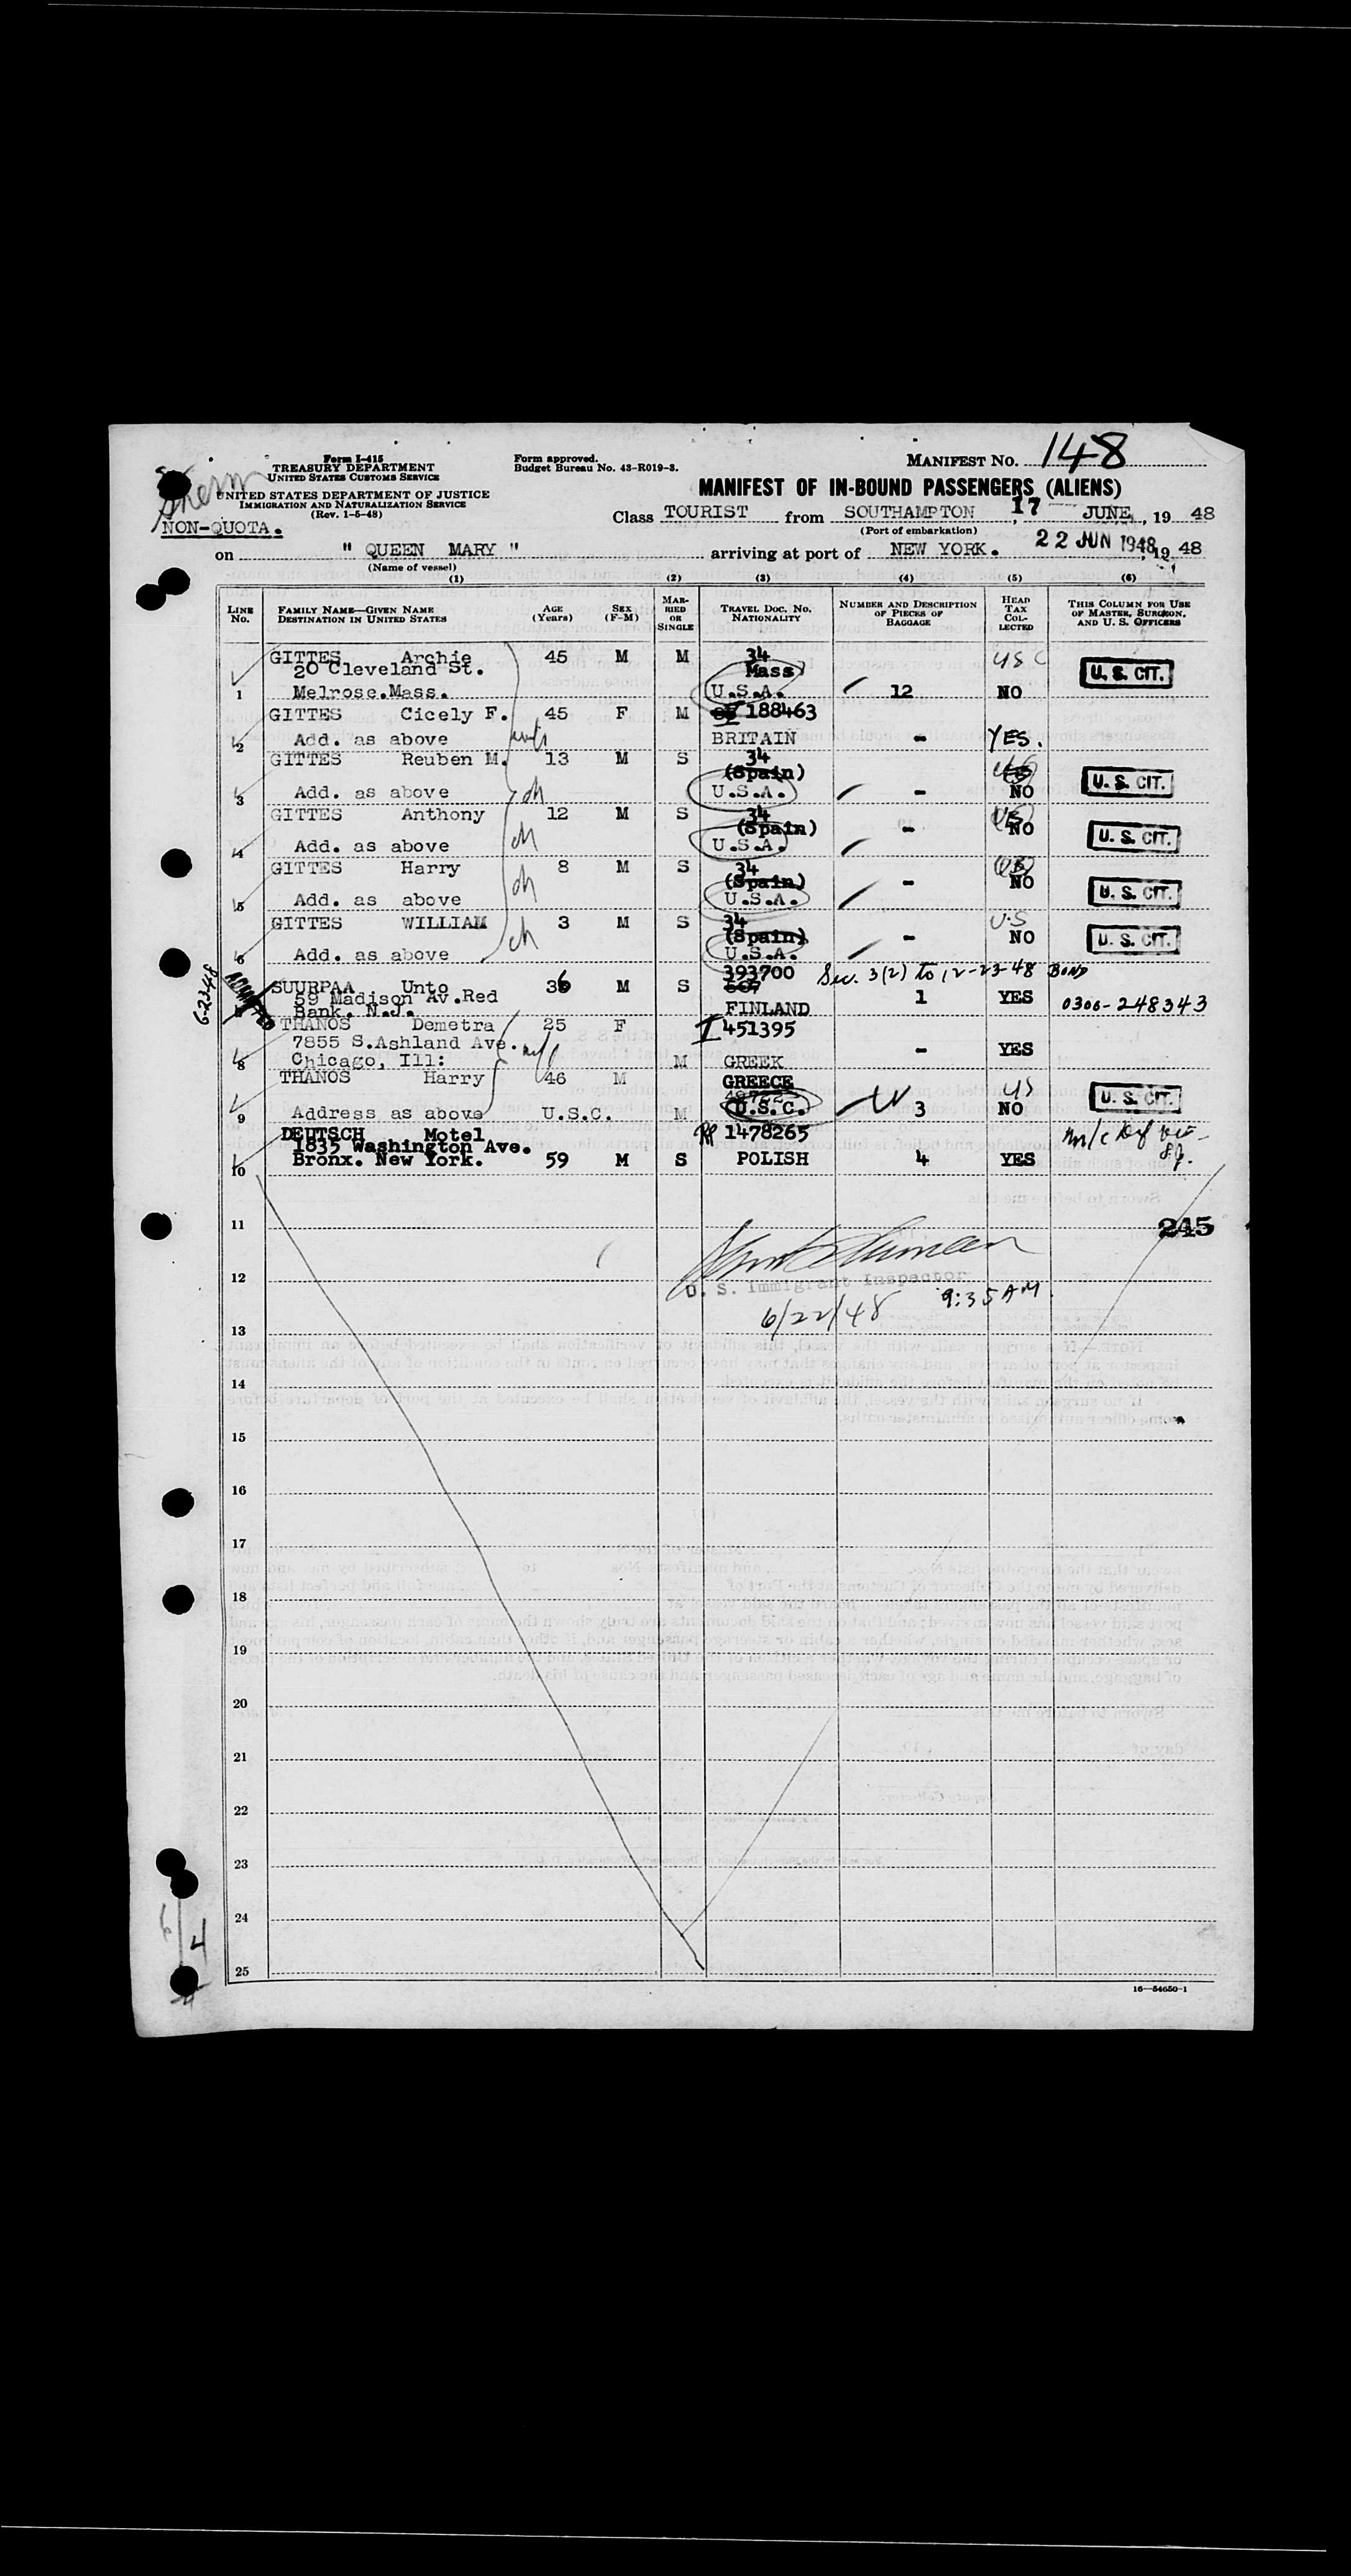 Form I-415
TREASURY DEPARTMENT
UNITED STATES CUSTOMS SERVICE
UNITED STATES DEPARTMENT OF JUSTICE
IMMIGRATION AND NATURALIZATION SERVICE
(Rev. 1-5-48)
NON-QUOTA.
Form approved.
Budget Bureau No. 43-R019-3.
MANIFEST No. 148
MANIFEST OF IN-BOUND PASSENGERS (ALIENS)
Class TOURIST from SOUTHAMPTON, 17 JUNE, 19 48
(Port of embarkation)
on " QUEEN MARY " arriving at port of NEW YORK. 22 JUN 1948, 19 48
(Name of vessel)
(1) (2) (3) (4) (5) (6)
LINE No. FAMILY NAME—GIVEN NAME DESTINATION IN UNITED STATES AGE (Years) SEX (F-M) MARRIED OR SINGLE TRAVEL DOC. No. NATIONALITY NUMBER AND DESCRIPTION OF PIECES OF BAGGAGE HEAD TAX COLLECTED THIS COLUMN FOR USE OF MASTER, SURGEON, AND U. S. OFFICERS
GITTES Archie 45 M M 34 USC U. S. CIT.
20 Cleveland St. Mass)
1 Melrose.Mass. U.S.A. 12 NO
GITTES Cicely F. 45 F M I 188463
2 Add. as above BRITAIN - YES.
GITTES Reuben M. 13 M S 34
(Spain) U. S. CIT.
3 Add. as above ch U.S.A. - NO
GITTES Anthony 12 M S 34 US
(Spain) - NO
4 Add. as above ch U.S.A. U. S. CIT.
GITTES Harry 8 M S 34
(Spain) - NO
5 Add. as above ch U.S.A. U. S. CIT.
GITTES WILLIAM 3 M S 34 U.S
(Spain) - NO
6 Add. as above ch U.S.A. U. S. CIT.
6-23-48 ADMITTED
393700 Sec. 3(2) to 12-23-48 BOND
SUURPAA Unto 36 M S
59 Madison Av.Red 1 YES 0306-248343
Bank. N.J. FINLAND
THANOS Demetra 25 F I 451395
7855 S.Ashland Ave. - YES
8 Chicago, Ill: M GREEK
THANOS Harry 46 M GREECE US
9 Address as above U.S.C. M U.S.C. 3 NO U. S. CIT.
DEUTSCH Motel RP 1478265
1835 Washington Ave.
10 Bronx. New York. 59 M S POLISH 4 YES
11 245
12
U. S. Immigrant Inspector
6/22/48 9:35 AM
13
14
15
16
17
18
19
20
21
22
23
24
25
16—54650-1